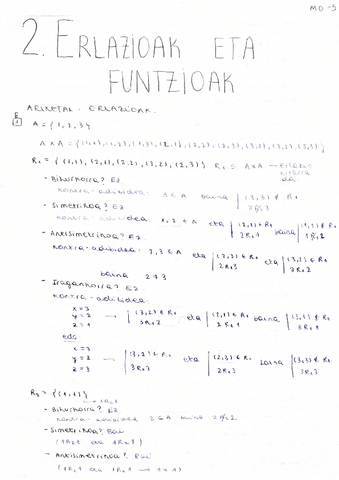 MD-3
2. ERLAZIOAK ETA
FUNTZIOAK
ARIKETAK: ERLAZIOAK.
A = {1, 2, 3}
A x A = {(1,1), (1,2), (1,3), (2,1), (2,2), (2,3), (3,1), (3,2), (3,3)}
R₁ = {(1,1), (2,1), (2,2), (3,2), (2,3)} R₁ ⊆ AxA → Erlazio bitarra da
- Bihurkorra? Ez
kontra-adibidea: 3 ∈ A baina | (3,3) ∉ R₁
- Simetrikoa? Ez
kontra-adibidea: 1, 2 ∈ A eta | (2,1) ∈ R₁ 2R₁1 baina | (1,2) ∉ R₁
- Antisimetrikoa? Ez.
kontra-adibidea: 2, 3 ∈ A eta | (2,3) ∈ R₁ 2R₁3 eta
baina 2 ≠ 3
- Iragankorra? Ez.
kontra-adibidea:
x = 3
y = 2 → | (3,2) ∈ R₁ 3R₁2 eta | (2,1) ∈ R₁ 2R₁1 baina | (3,1) ∉ R₁
z = 1
edo:
x = 3
y = 2 → | (3,2) ∈ R₁ 3R₁2 eta | (2,3) ∈ R₁ 2R₁3 baina | (3,3) ∉ R₁
z = 3
R₂ = {(1,1)}
→ 1R₂1
- Bihurkorra? Ez
kontra-adibidea 2 ∈ A
- Simetrikoa? Bai
(1R₂1 eta 1R₂1)
- Antisimetrikoa? Bai
(1R₂1 eta 1R₂1 → 1=1)